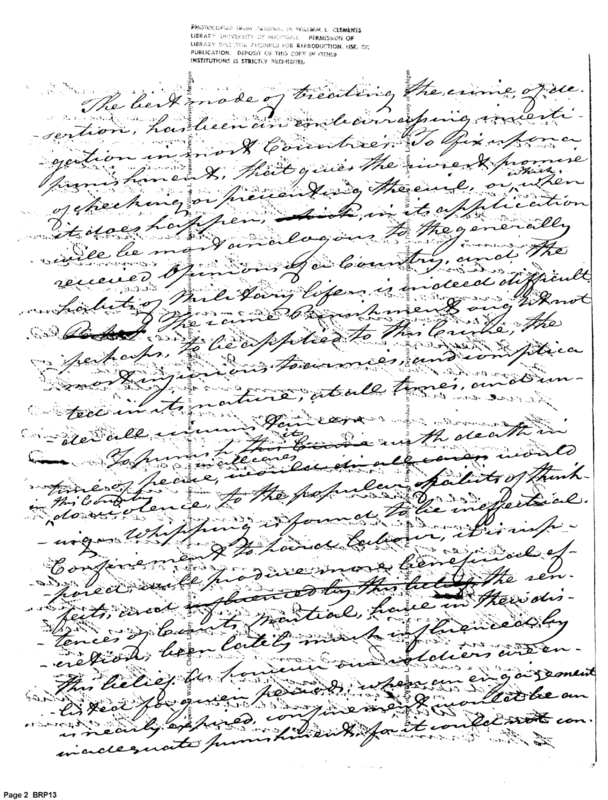 PHOTOCOPIED FROM ORIGINAL IN WILLIAM L. CLEMENTS
LIBRARY, UNIVERSITY OF MICHIGAN. PERMISSION OF
LIBRARY REQUIRED FOR REPRODUCTION, USE, OR
PUBLICATION. DEPOSIT OF THIS COPY IN OTHER
INSTITUTIONS IS STRICTLY PROHIBITED.
The best mode of treating the crime of de-
-sertion, has been an embarrassing investi-
-gation in most Countries. To fix upon a
punishment, that gives the surest promise
of checking or preventing the evil, or, which, when
it does happen, in its application
will be most analogous to the generally
received Opinions of a Country, and the
habits of Military life, is indeed difficult.
The same Punishment ought not
perhaps, to be applied to this Crime, the
most injurious to armies, and complica
ted in its nature, at all times, and un-
-der all
To punish it with death in
time of peace, in all cases would
in this Country
do violence, to the popular habits of think-
-ing. Whipping is found, to be ineffectual.
Confinement to hard labour, it is sup-
-posed, will produce more beneficial ef-
fects, and influenced by this belief, the sen-
-tences of Courts Martial, have in their dis-
-cretion, been lately much influenced, by
this belief. As however our soldiers are en-
-listed for given periods, when an engagement
is nearly expired, confinement would be an
inadequate punishment, for it could not con-
Page 2 BRP13